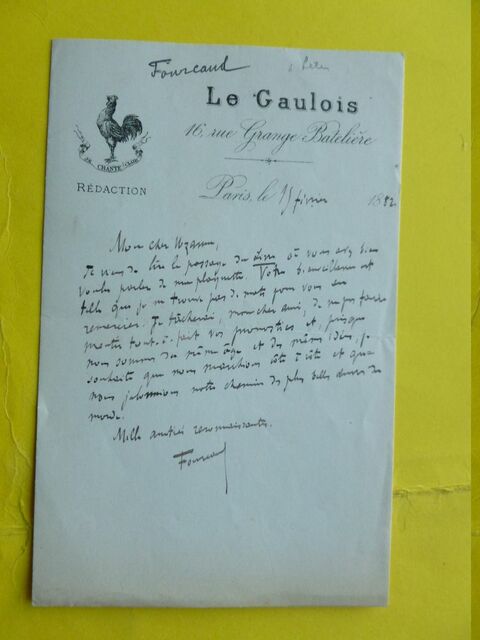 Fourcaud
Le Gaulois
16, rue Grange-Batelière
JE CHANTE CLAIR
RÉDACTION
Paris, le 15 février 1882
Mon cher Uzanne,
Je viens de lire le passage du où vous avez bien
voulu parler de ma plaquette. Votre bienveillance est
telle que je ne trouve pas de mots pour vous en
remercier. Je tâcherai, mon cher ami, de ne pas
mentir tout-à-fait vos pronostics et, puisque
nous sommes du même âge et des mêmes idées, je
souhaite que nous marchions côte à côte et que
nous jalonnions notre chemin des plus belles choses du
monde.
Mille amitiés reconnaissantes.
Fourcaud